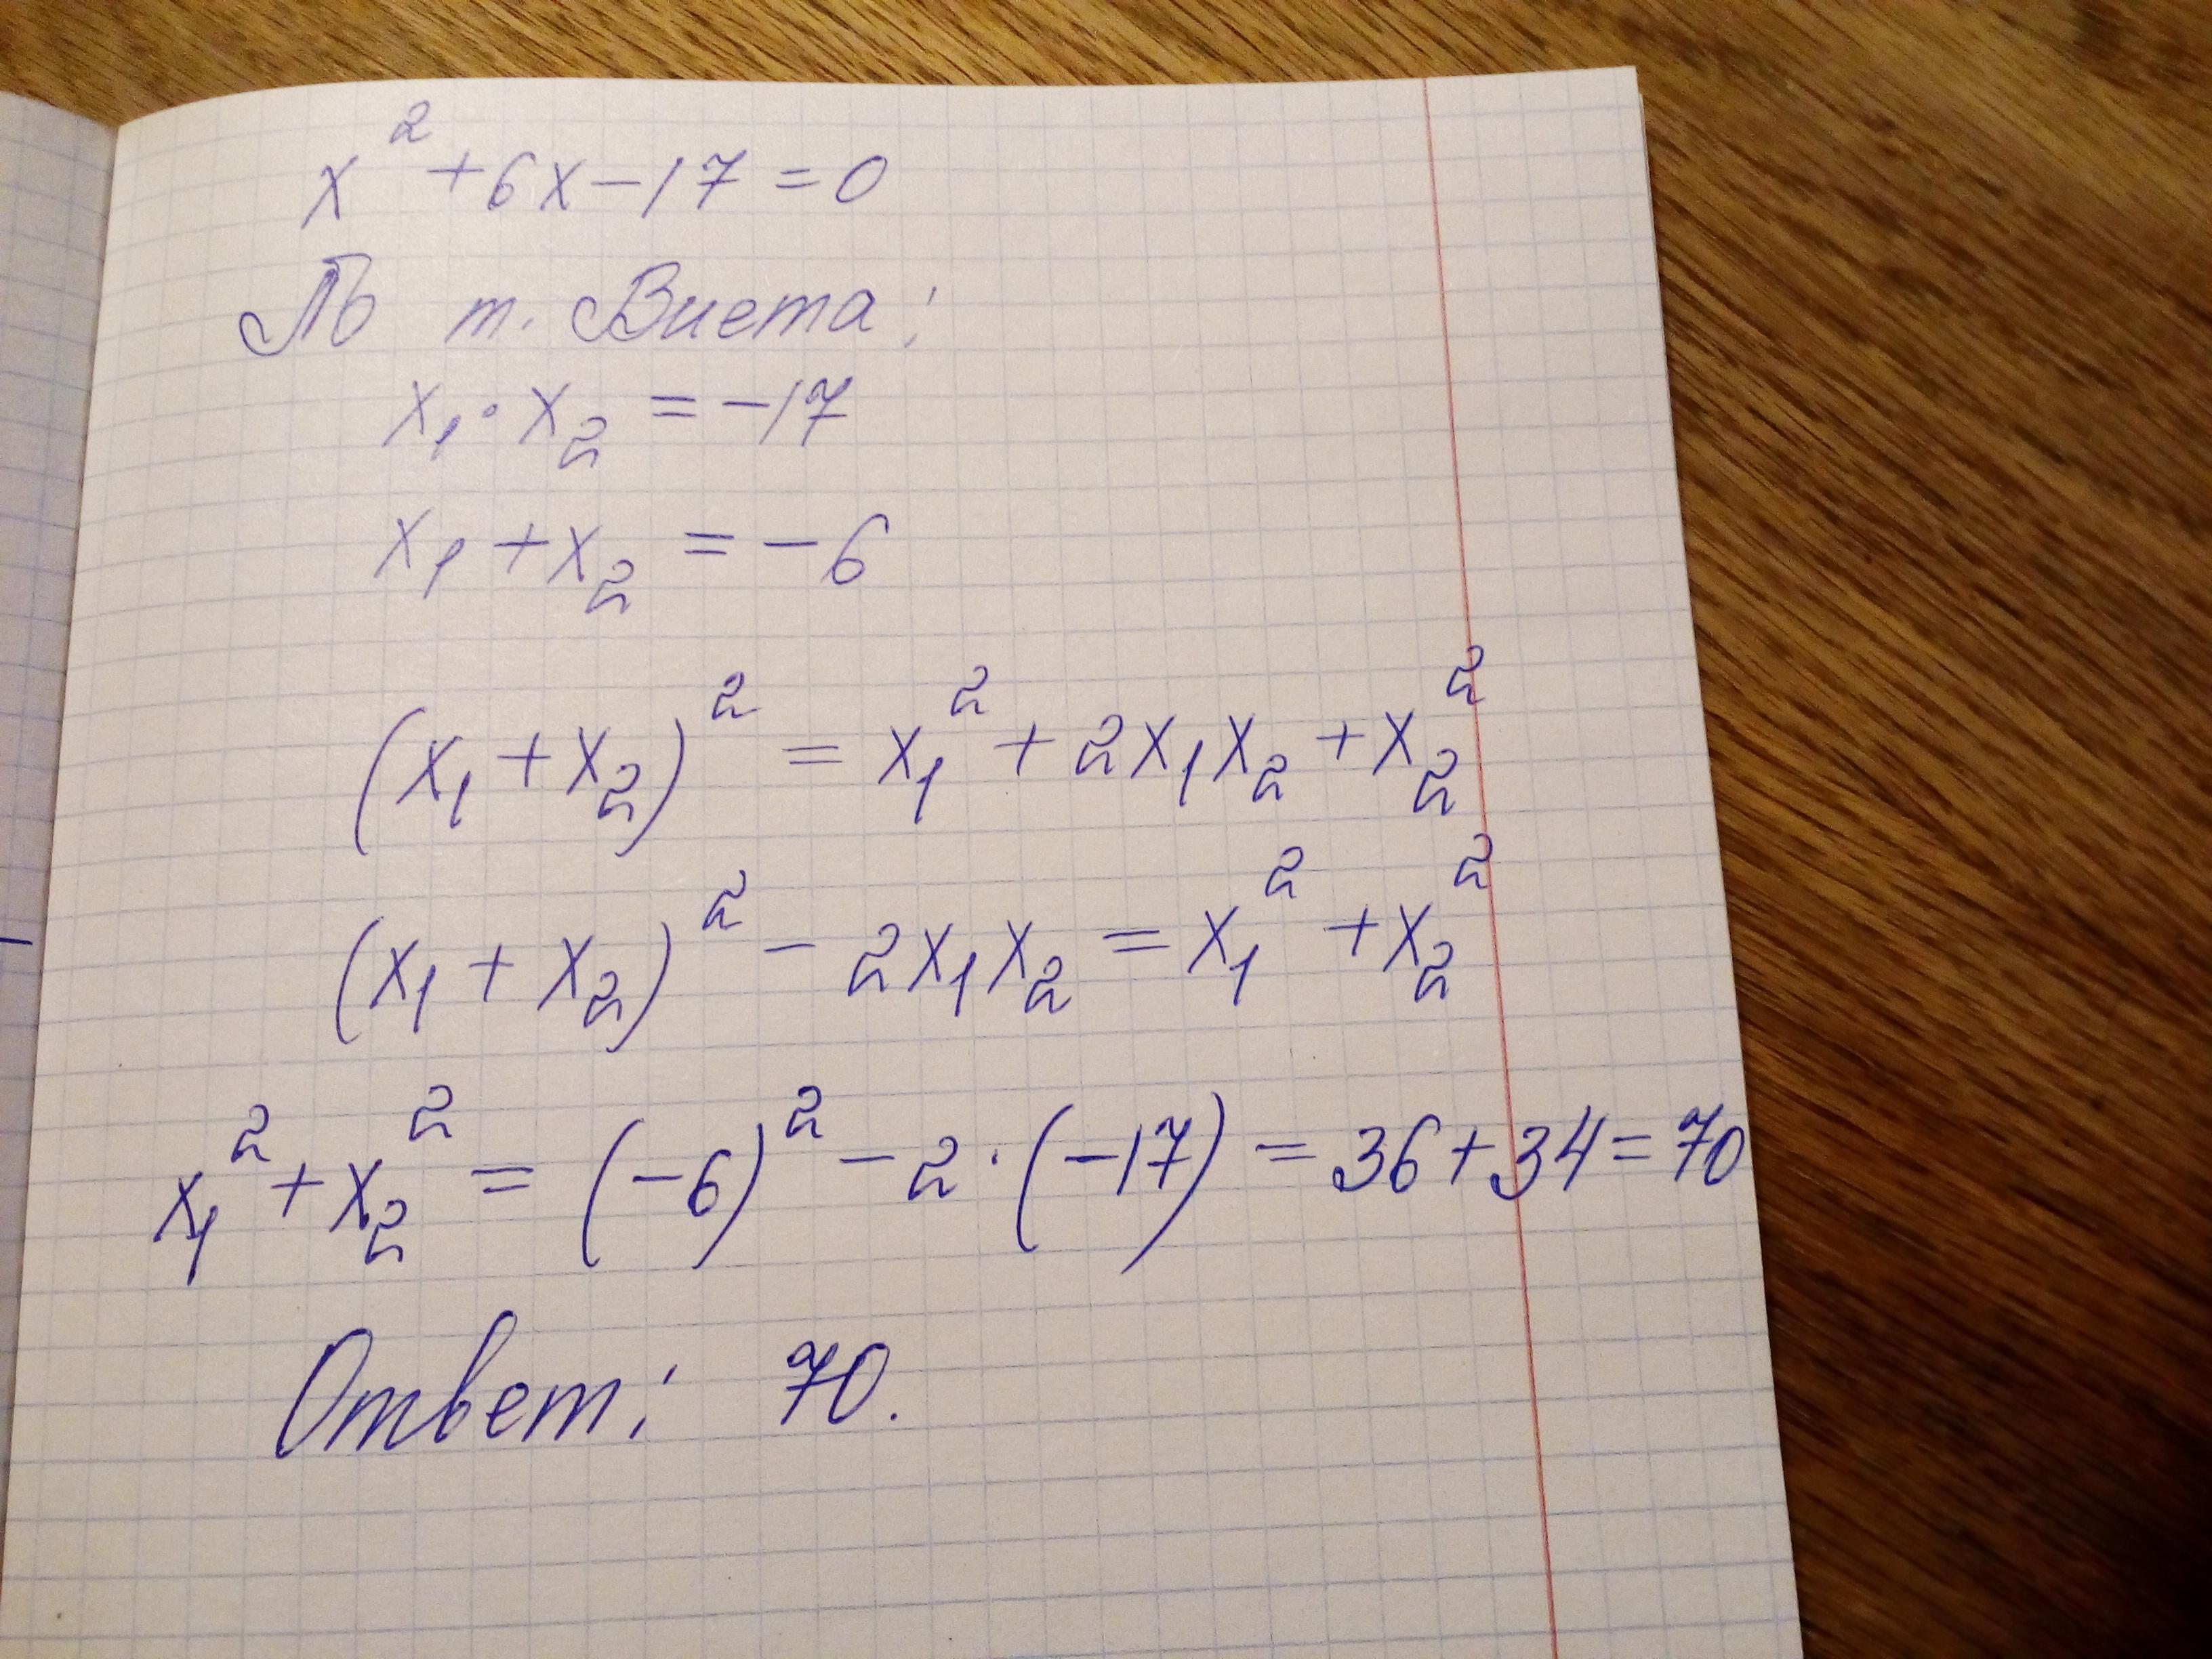 x² + 6x − 17 = 0
По т. Виета:
x₁ · x₂ = −17
x₁ + x₂ = −6
(x₁ + x₂)² = x₁² + 2x₁x₂ + x₂²
(x₁ + x₂)² − 2x₁x₂ = x₁² + x₂²
x₁² + x₂² = (−6)² − 2 · (−17) = 36 + 34 = 70
Ответ: 70.